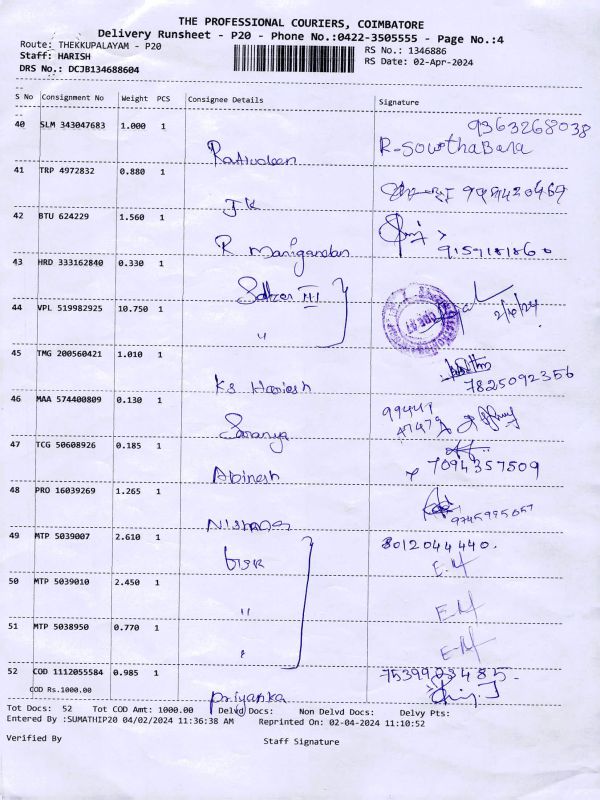 THE PROFESSIONAL COURIERS, COIMBATORE
Delivery Runsheet - P20 - Phone No.:0422-3505555 - Page No.:4
Route: THEKKUPALAYAM - P20
RS No.: 1346886
Staff: HARISH
RS Date: 02-Apr-2024
DRS No.: DCJB134688604
S No Consignment No Weight PCS Consignee Details Signature
40 SLM 343047683 1.000 1
9363268038
R-Sowthabara
41 TRP 4972832 0.880 1
JK
42 BTU 624229 1.560 1
R Manigandan
9159181860
43 HRD 333162840 0.330 1
III
44 VPL 519982925 10.750 1
"
2/4/24
45 TMG 200560421 1.010 1
KS Hariesh
7825092356
46 MAA 574400809 0.130 1
Saranya
47 TCG 50608926 0.185 1
Abinesh
7094357509
48 PRO 16039269 1.265 1
49 MTP 5039007 2.610 1
8012044440.
E.M
50 MTP 5039010 2.450 1
"
E.M
51 MTP 5038950 0.770 1
"
E.M
52 COD 1112055584 0.985 1
7539903485.
COD Rs.1000.00
Priyanka
Tot Docs: 52 Tot COD Amt: 1000.00 Delvd Docs: Non Delvd Docs: Delvy Pts:
Entered By :SUMATHIP20 04/02/2024 11:36:38 AM Reprinted On: 02-04-2024 11:10:52
Verified By Staff Signature